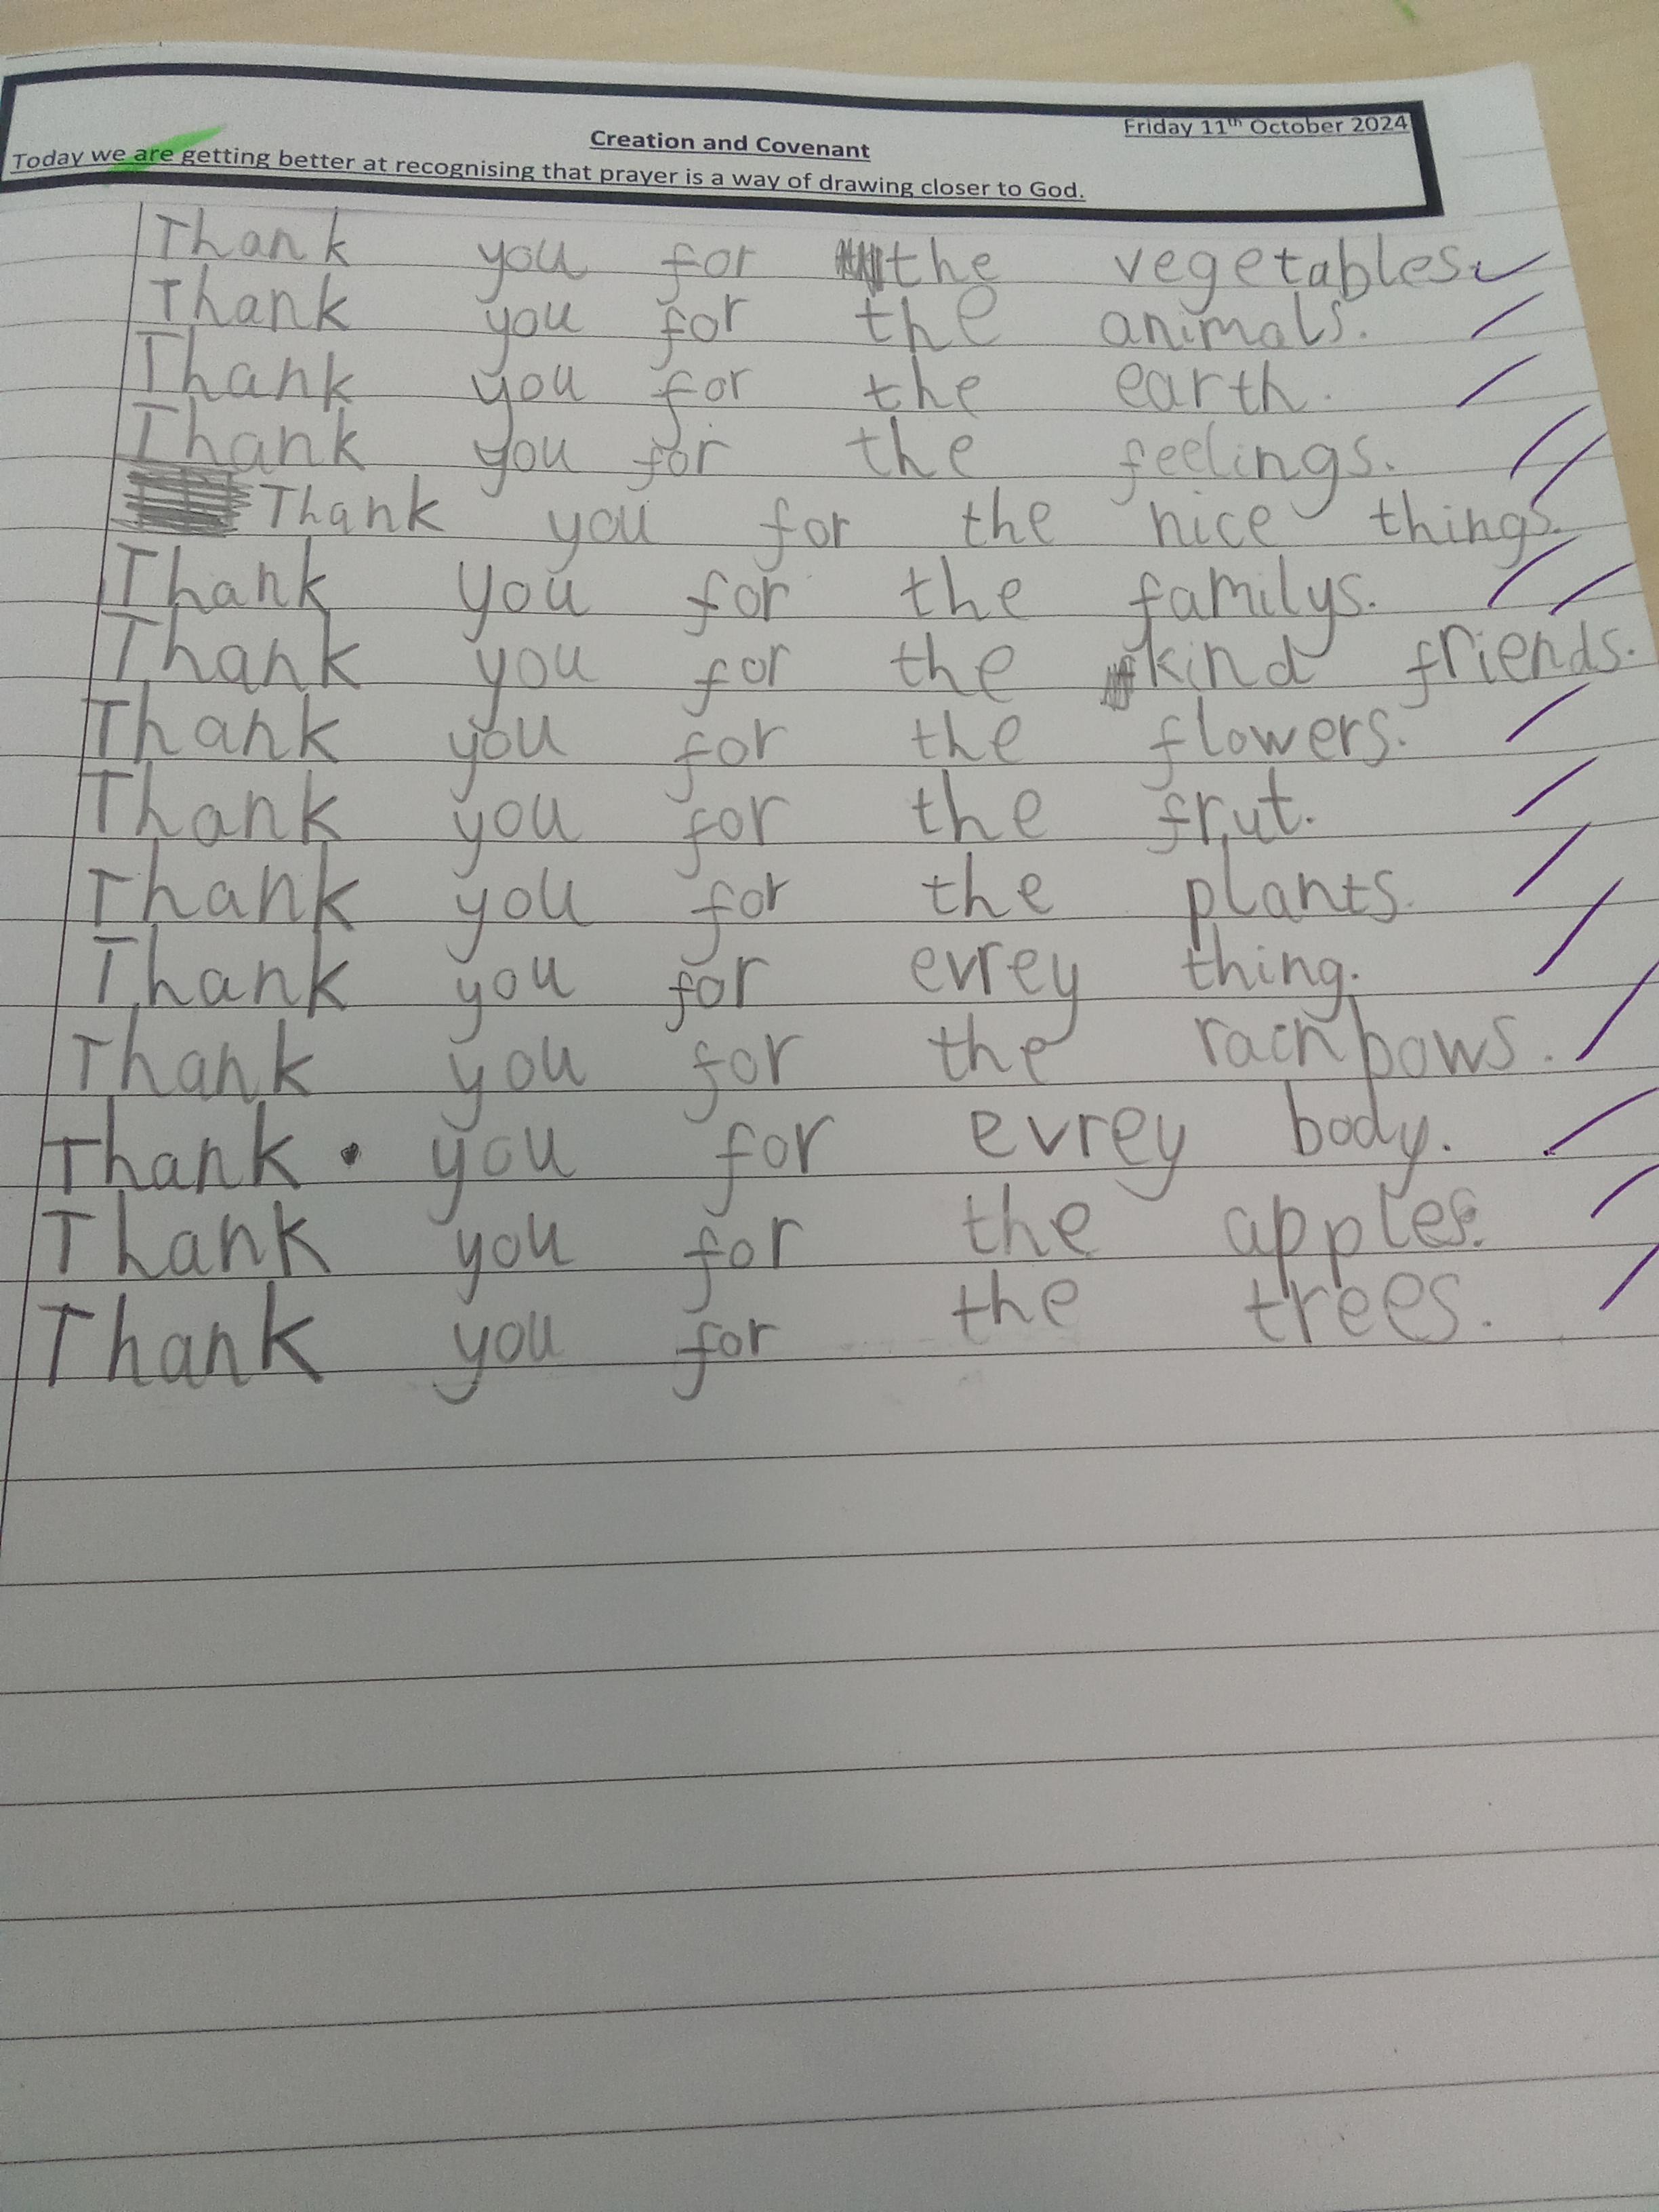 Friday 11th October 2024
Creation and Covenant
Today we are getting better at recognising that prayer is a way of drawing closer to God.
Thank you for the vegetables.
Thank you for the animals.
Thank you for the earth.
Thank you for the feelings.
Thank you for the nice things.
Thank you for the familys.
Thank you for the kind friends.
Thank you for the flowers.
Thank you for the frut.
Thank you for the plants.
Thank you for evrey thing.
Thank you for the rainbows.
Thank you for evrey body.
Thank you for the apples.
Thank you for the trees.